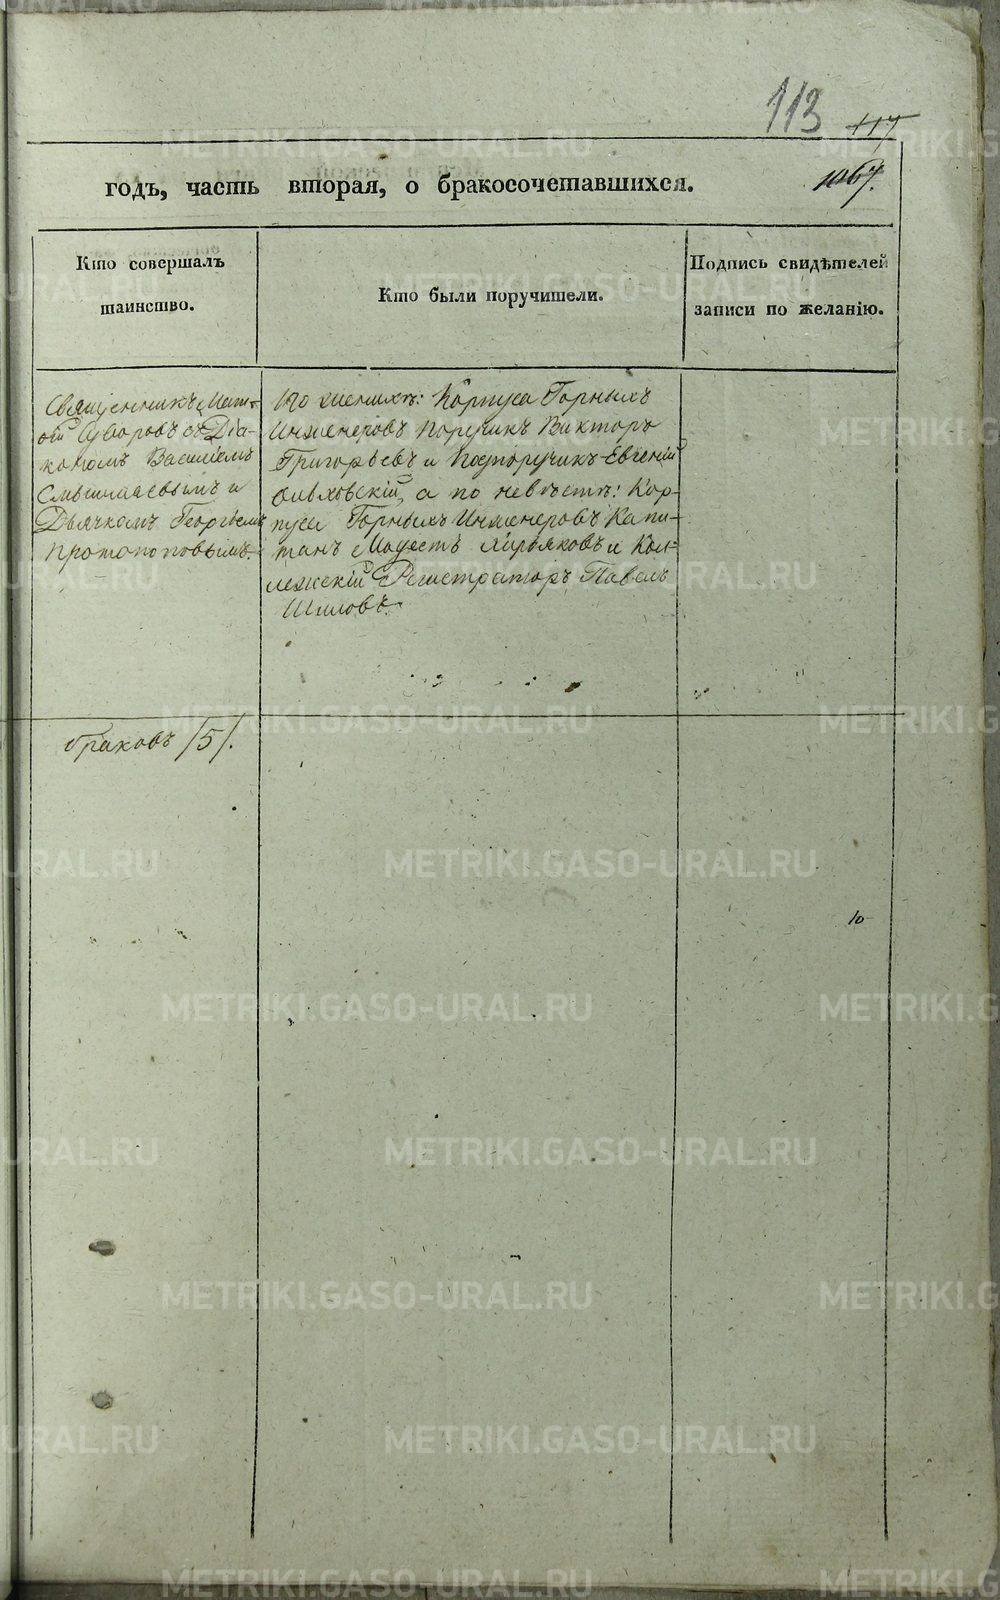 113
117
годъ, часть вторая, о бракосочетавшихся.
1067.
Кто совершалъ
таинство.
Кто были поручители.
Подпись свидѣтелей
записи по желанію.
Священникъ Мат-
ѳій Суворовъ съ Діа-
кономъ Василіемъ
и
Дьячкомъ Георгіемъ
Протопоповымъ.
По женихѣ: Корпуса Горныхъ
Инженеровъ Поручикъ Викторъ
Григорьевъ и Подпоручикъ Евгеній
Ольховскій, а по невѣстѣ: Кор-
пуса Горныхъ Инженеровъ Капи-
танъ Модестъ Хирьяковъ и Кол-
лежскій Регистраторъ Павелъ
Шиловъ.
браковъ /5/.
METRIKI.GASO-URAL.RU